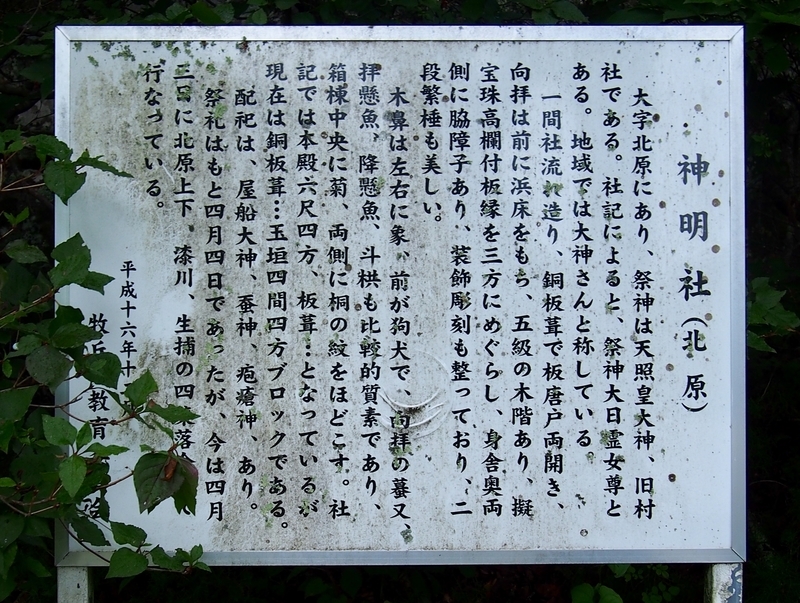 神明社(北原)
大字北原にあり、祭神は天照皇大神、旧村
社である。社記によると、祭神大日霊女尊と
ある。地域では大神さんと称している。
一間社流れ造り、銅板葺で板唐戸両開き、
向拝は前に浜床をもち、五級の木階あり、擬
宝珠高欄付板縁を三方にめぐらし、身舎奥両
側に脇障子あり、装飾彫刻も整っており、二
段繁棰も美しい。
木鼻は左右に象、前が狗犬で、向拝の蟇又、
拝懸魚、降懸魚、斗栱も比較的質素であり、
箱棟中央に菊、両側に桐の紋をほどこす。社
記では本殿六尺四方、板葺…となっているが
現在は銅板葺…玉垣四間四方ブロックである。
配祀は、屋船大神、蚕神、疱瘡神、あり。
祭礼はもと四月四日であったが、今は四月
三日に北原上下、漆川、生捕の四集落
行なっている。
平成十六年十
牧丘 教育